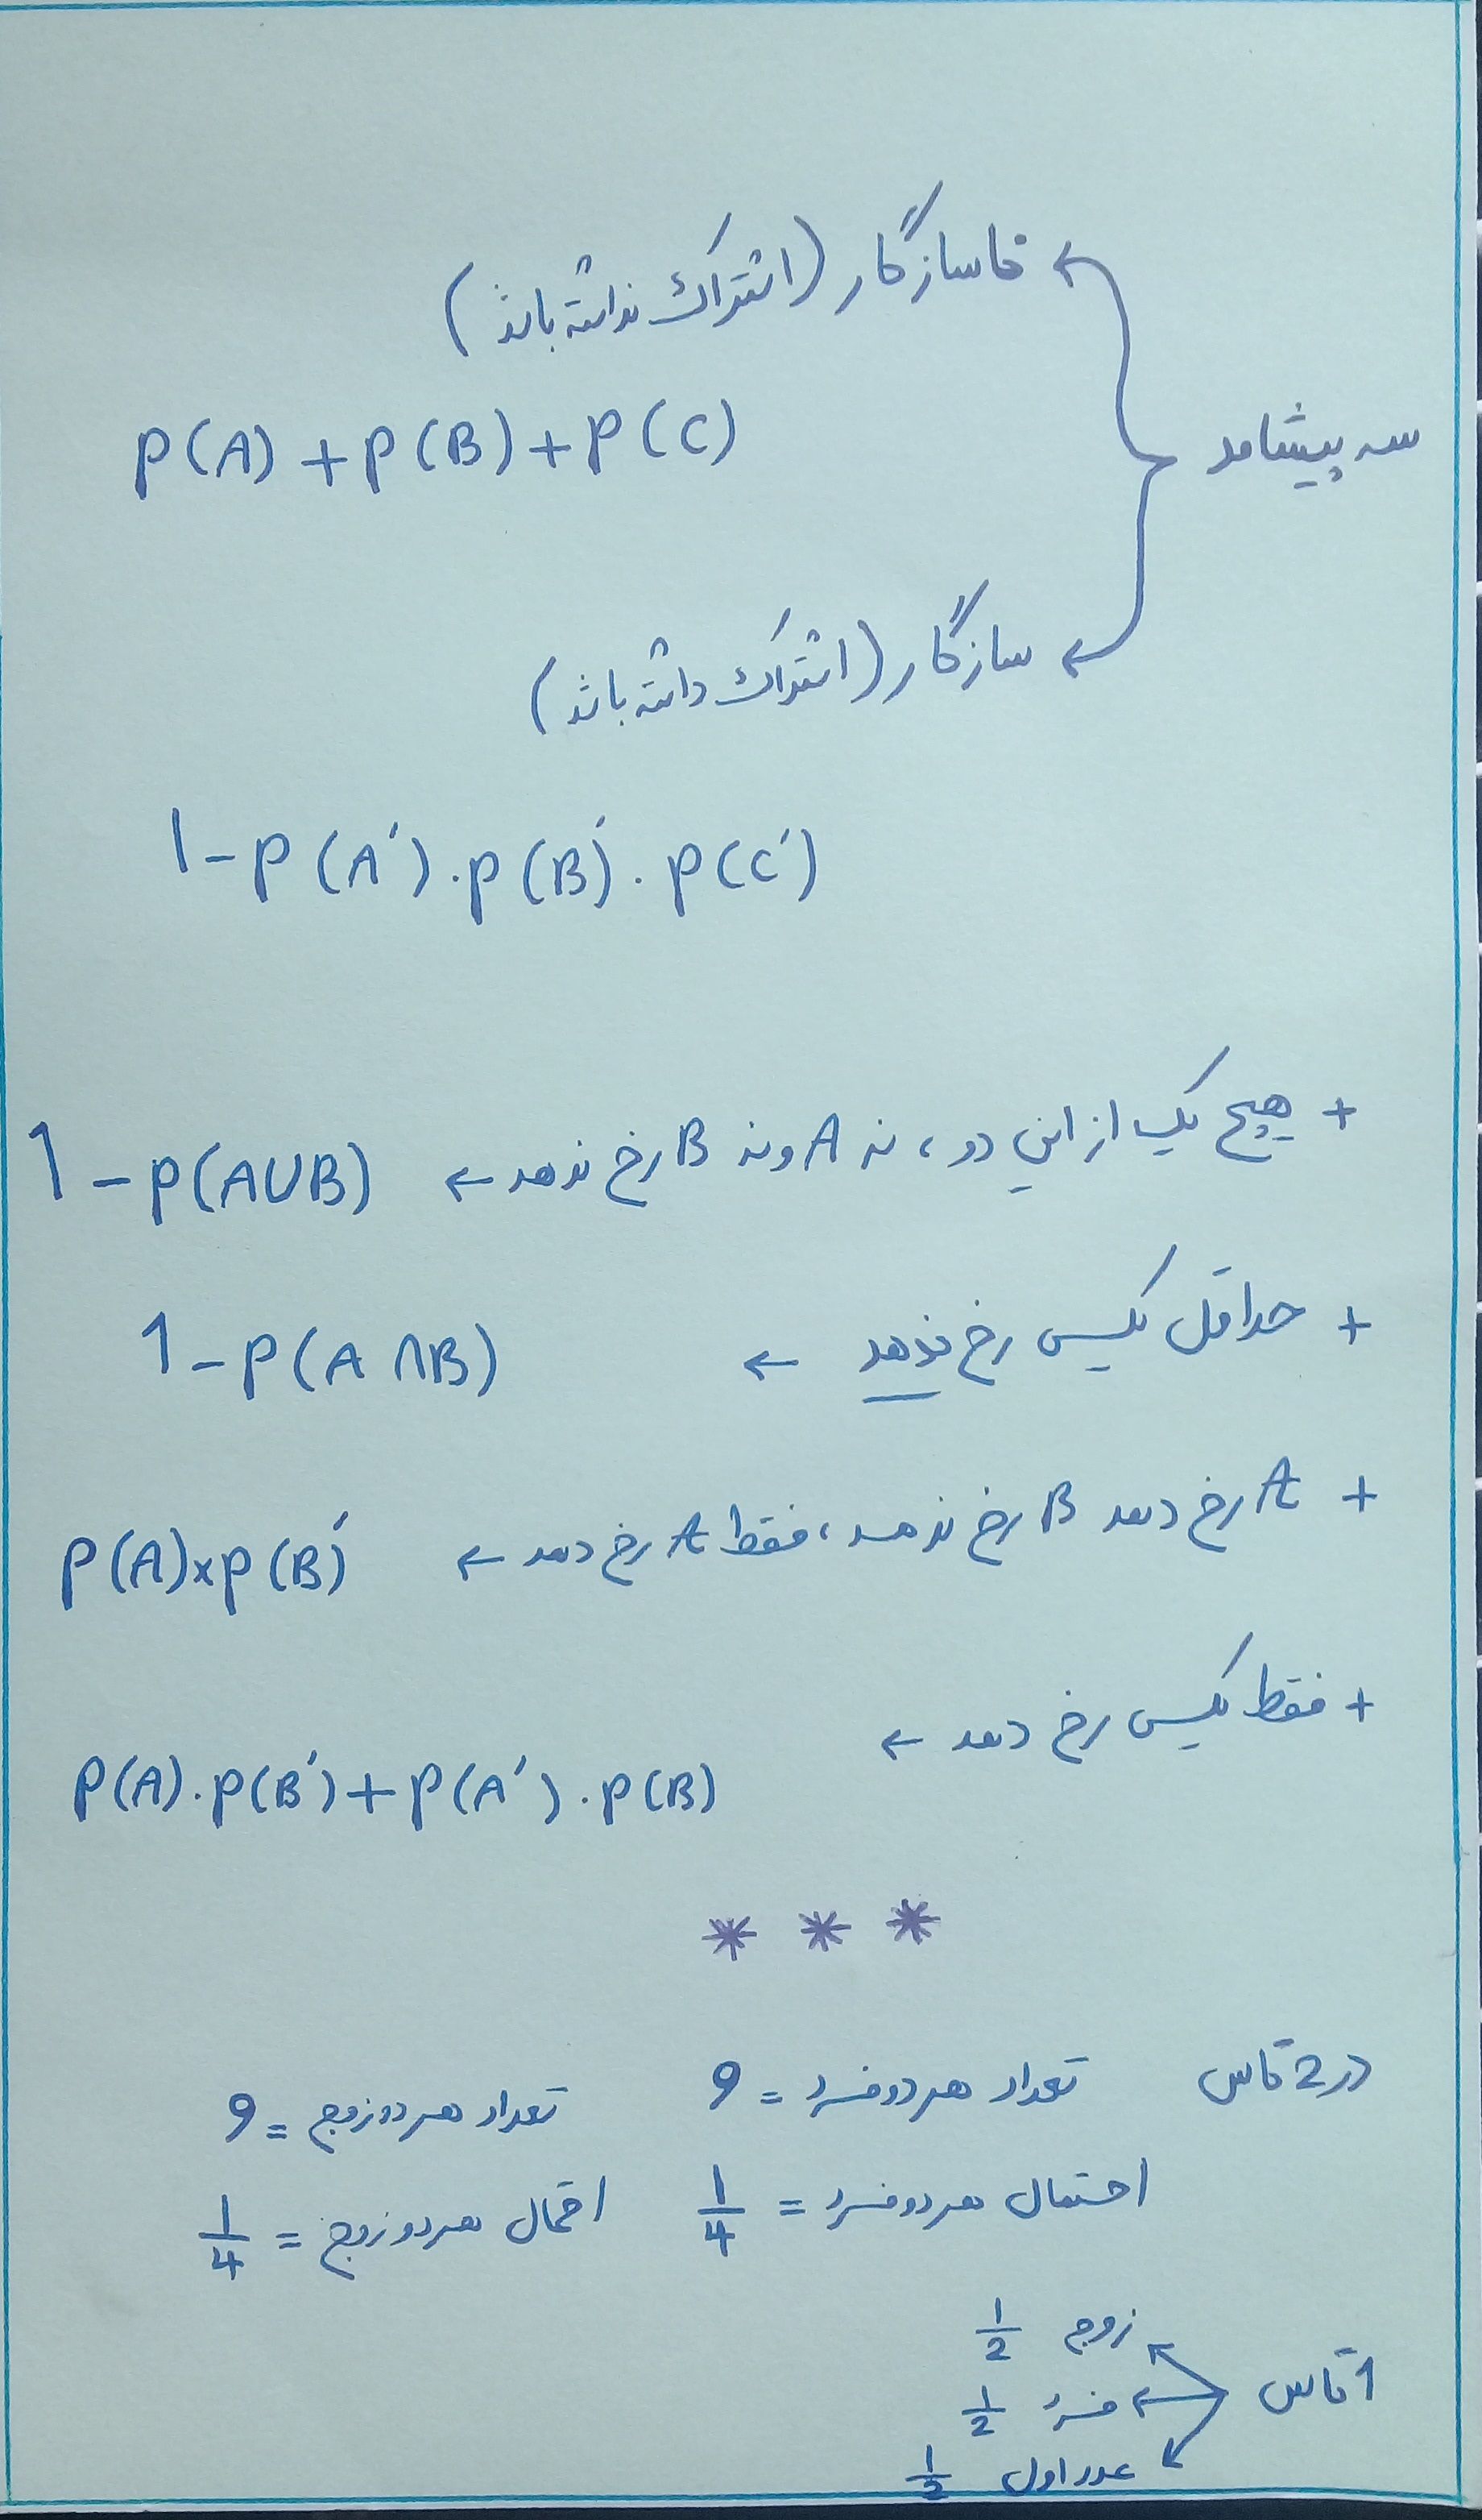 سه پیشامد
ناسازگار (اشتراک نداشته باشند)
P(A) + P(B) + P(C)
سازگار (اشتراک داشته باشند)
1 - P(A′) . P(B′) . P(C′)
+ هیچ یک از این دو ، نه A و نه B رخ ندهد ← 1 - P(A∪B)
+ حداقل یکی رخ ندهد ← 1 - P(A∩B)
+ A رخ دهد B رخ ندهد ، فقط A رخ دهد ← P(A)×P(B′)
+ فقط یکی رخ دهد ←
P(A).P(B′) + P(A′).P(B)
* * *
در 2 تاس تعداد هر دو فرد = 9 تعداد هر دو زوج = 9
احتمال هر دو فرد = 1/4 احتمال هر دو زوج = 1/4
1 تاس
زوج 1/2
فرد 1/2
عدد اول 1/2